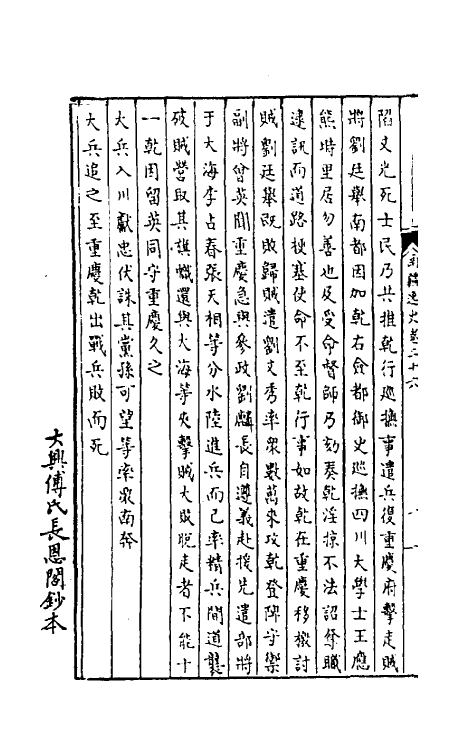 陷文光死士民乃共推乾行廵撫事遣兵復重慶府擊走賊
將劉廷舉南都因加乾右僉都御史廵撫四川大學士王應
熊時里居勿善也及受命督師乃劾奏乾淫掠不法詔奪職
逮訊而道路梗塞使命不至乾行事如故乾在重慶移檄討
賊劉廷舉既敗歸賊遣劉文秀率衆數萬來攻乾登陴守禦
副將曾英聞重慶急與參政劉麟長自遵義赴援先遣部將
于大海李占春張天相等分水陸進兵而己率精兵間道襲
破賊營取其旗幟還與大海等夾擊賊大敗脱走者不能十
一乾因留英同守重慶久之
大兵入川獻忠伏誅其黨孫可望等率衆南奔
大兵追之至重慶乾出戰兵敗而死
大興傅氏長恩閣鈔本